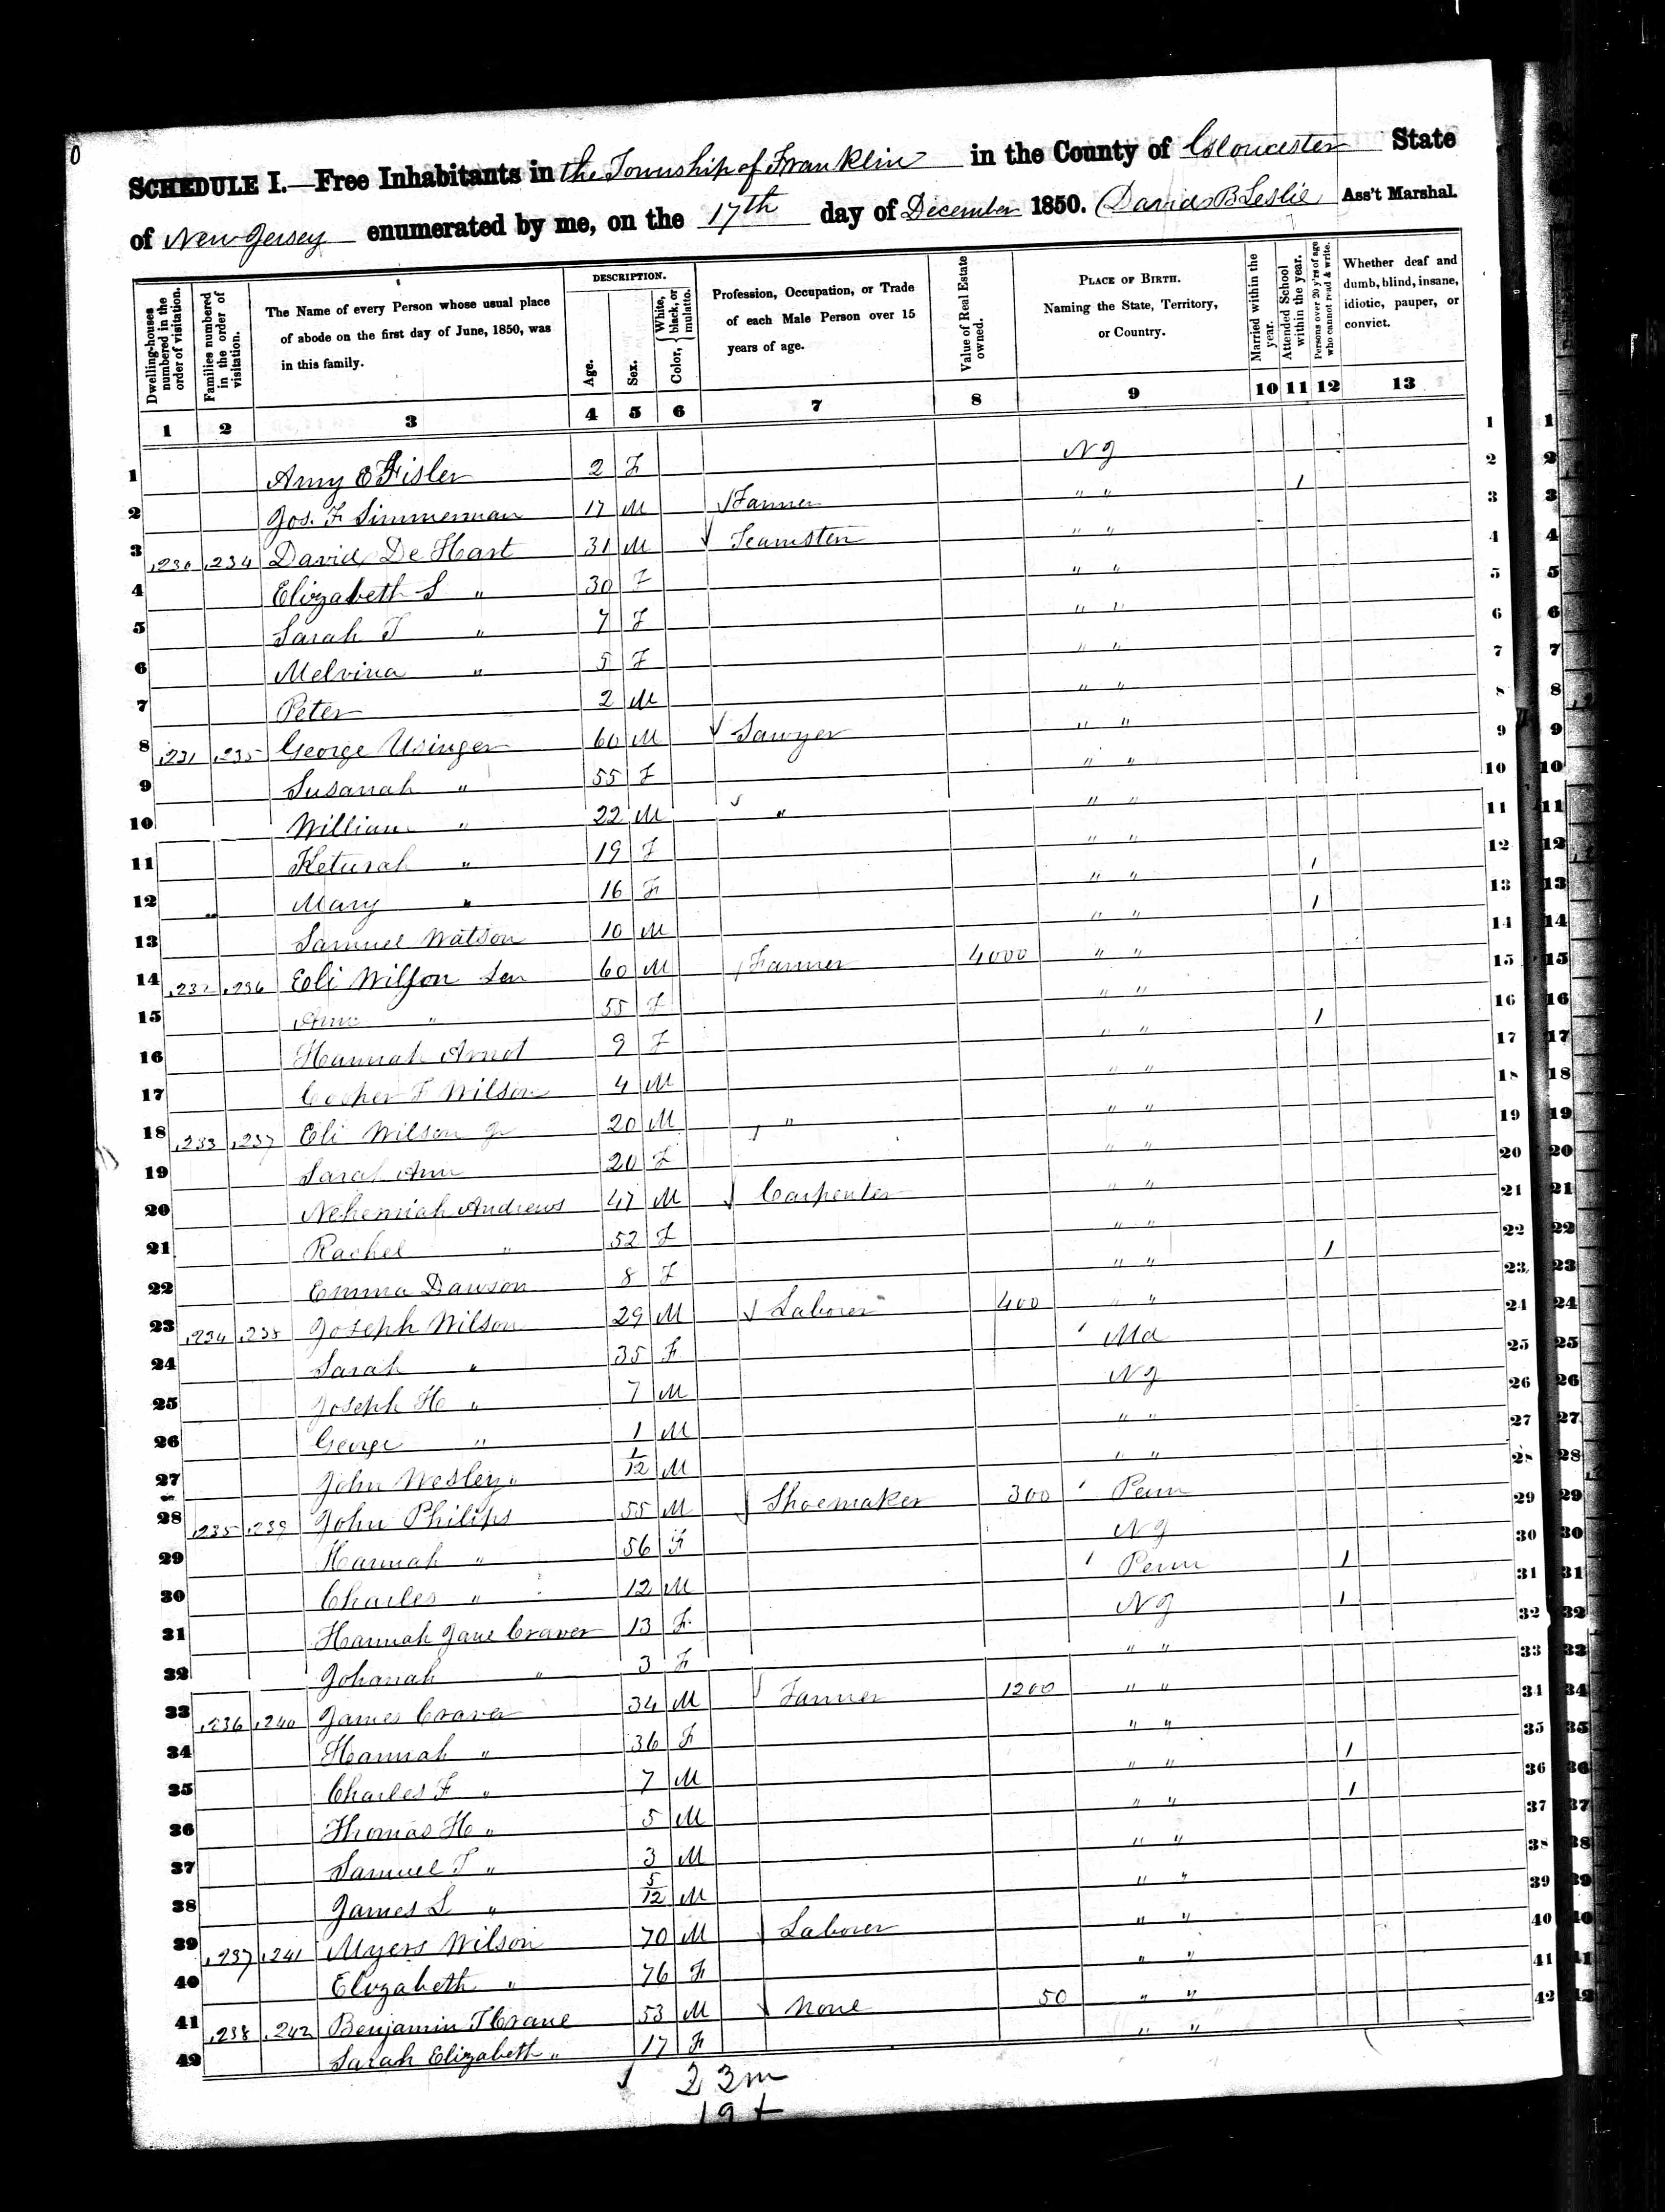 0
SCHEDULE I.—Free Inhabitants in the Township of Franklin in the County of Gloucester State
of New Jersey enumerated by me, on the 17th day of December 1850. David B Leslie Ass't Marshal.
Dwelling-houses numbered in the order of visitation. Families numbered in the order of visitation. The Name of every Person whose usual place of abode on the first day of June, 1850, was in this family. DESCRIPTION. Age. Sex. Color, { White, black, or mulatto. Profession, Occupation, or Trade of each Male Person over 15 years of age. Value of Real Estate owned. PLACE OF BIRTH. Naming the State, Territory, or Country. Married within the year. Attended School within the year. Persons over 20 y'rs of age who cannot read & write. Whether deaf and dumb, blind, insane, idiotic, pauper, or convict.
1 2 3 4 5 6 7 8 9 10 11 12 13
1 Amy E Fisler 2 F NJ 1
2 Jos. F Simmerman 17 M Farmer " " 1 2
3 ,230 ,234 David De Hart 31 M Teamster " " 3
4 Elizabeth S " 30 F " " 4
5 Sarah T " 7 F " " 5
6 Melvina " 5 F " " 6
7 Peter 2 M " " 7
8 ,231 ,235 George Usinger 60 M Sawyer " " 8
9 Susanah " 55 F " " 9
10 William " 22 M " " " 10
11 Keturah " 19 F " " 11
12 Mary " 16 F " " 1 12
13 Samuel Watson 10 M " " 1 13
14 ,232 ,236 Eli Wilson Sen 60 M Farmer 4000 " " 14
15 Ann " 55 F " " 15
16 Hannah Arnot 9 F " " 1 16
17 Cooper F Wilson 4 M " " 17
18 ,233 ,237 Eli Wilson Jr 20 M " " " 18
19 Sarah Ann 20 F " " 19
20 Nehemiah Andrews 47 M Carpenter " " 20
21 Rachel " 52 F " " 21
22 Emma Dawson 8 F " " 1 22
23 ,234 ,238 Joseph Wilson 29 M Laborer 400 " " 23
24 Sarah " 35 F Md 24
25 Joseph H " 7 M NJ 25
26 George " 1 M " " 26
27 John Wesley " 1/12 M " " 27
28 ,235 ,239 John Philips 55 M Shoemaker 300 Penn 28
29 Hannah " 56 F NJ 29
30 Charles " 12 M Penn 1 30
31 Hannah Jane Craver 13 F NJ 1 31
32 Johanah " 3 F " " 32
33 ,236 ,240 James Craver 34 M Farmer 1200 " " 33
34 Hannah " 36 F " " 34
35 Charles F " 7 M " " 1 35
36 Thomas H " 5 M " " 1 36
37 Samuel T " 3 M " " 37
38 James L " 5/12 M " " 38
39 ,237 ,241 Myers Wilson 70 M Laborer " " 39
40 Elizabeth " 76 F " " 40
41 ,238 ,242 Benjamin T Crane 53 M None 50 " " 41
42 Sarah Elizabeth " 17 F " " 42
23 m
19 f